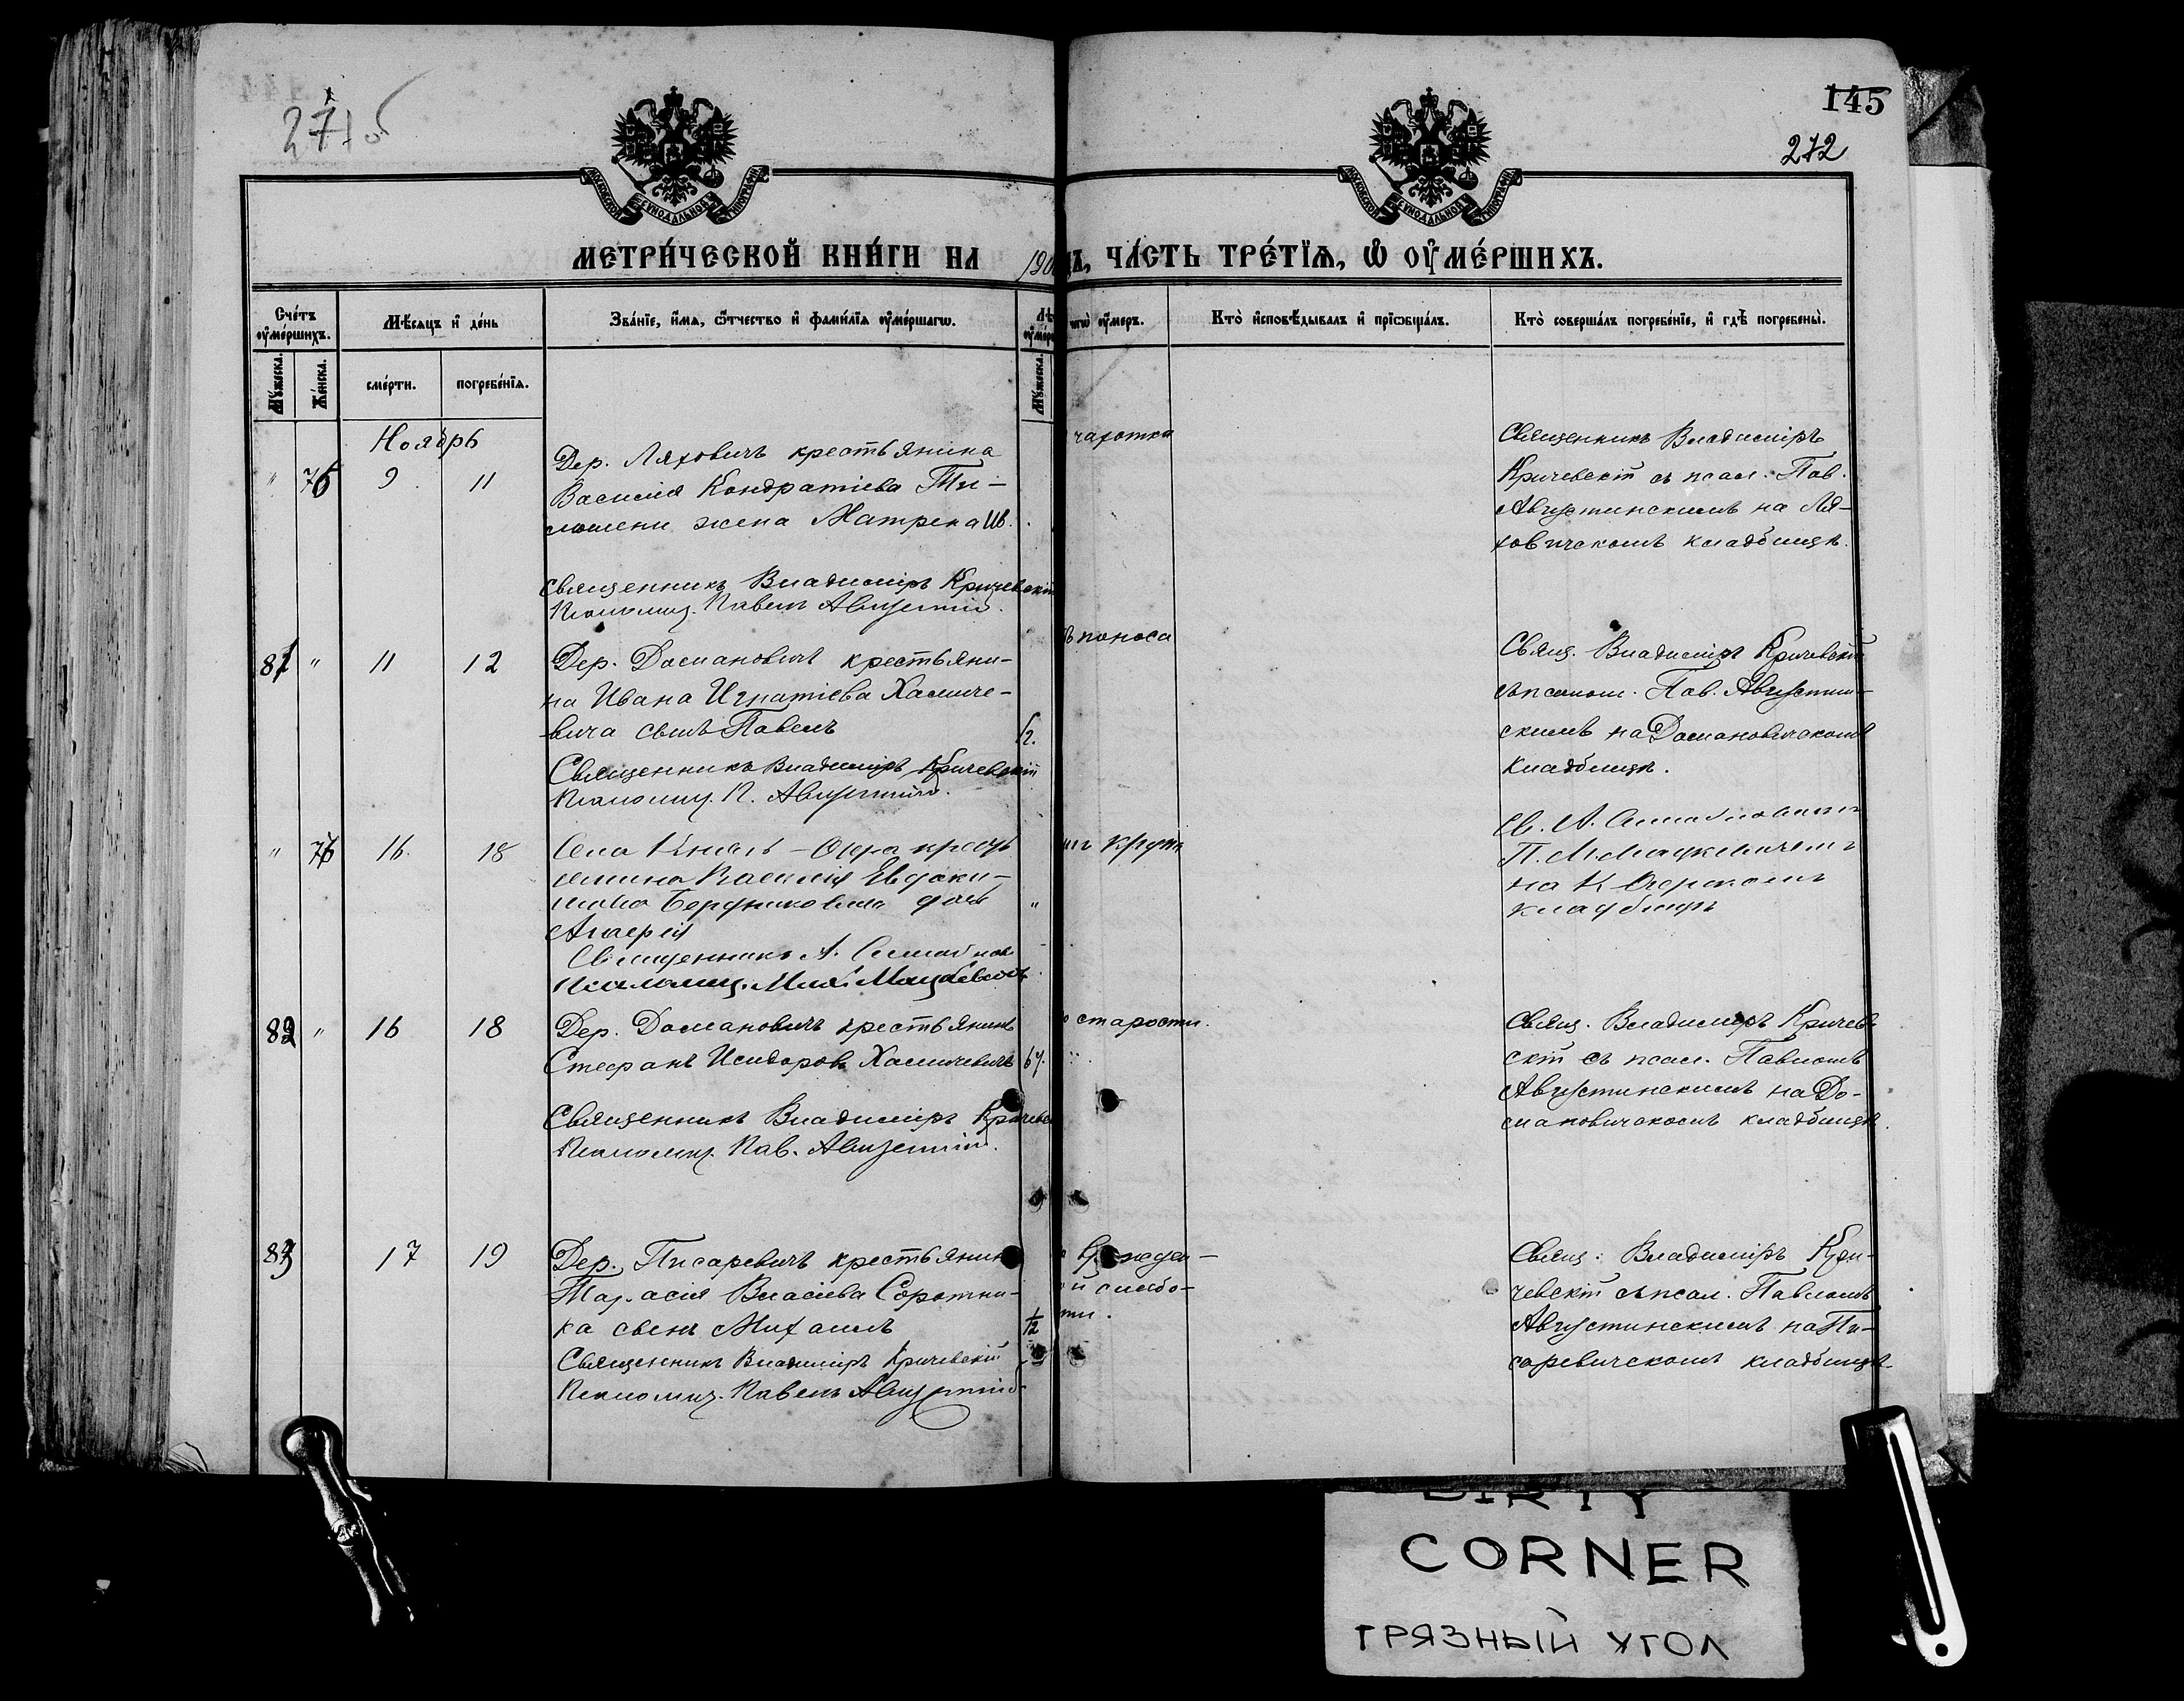 145
272
МЕТРИ́ЧЕСКОЙ КНИ́ГИ НА 190
ДЪ, ЧА́СТЬ ТРЕ́ТЇѦ, Ѡ҆ ОУ҆МЕ́РШИХЪ.
Сче́тъ оу҆ме́ршихъ.
Мѣ́сѧцъ и҆ де́нь
Зва́нїе, и҆́мѧ, ѻ҆́тчество и҆ фами́лїѧ оу҆ме́ршагѡ.
Кто̀ и҆сповѣ́дывалъ и҆ прїѡбща́лъ.
Кто̀ соверша́лъ погребе́нїе, и҆ гдѣ̀ погребены̀.
Мꙋ́жеска.
Же́нска.
сме́рти.
погребе́нїѧ.
Мꙋ́жеска.
оу҆́меръ.
Ноябрь
" 75 9 11
Дер. Ляховичъ крестьянина
Василія Кондратіева Ти-
жена Матрена Ив.
Священникъ Владиміръ Кричевскій
Псаломщ. Павелъ Августин
чахотка
Священникъ Владиміръ
Кричевскій съ псал. Пав.
Августинскимъ на Ля-
ховичскомъ кладбищѣ.
81 " 11 12
Дер. Домановичъ крестьяни-
на Ивана Игнатіева Хамиче-
вича сынъ Павелъ
Священникъ Владиміръ Кричевскій
Псаломщ. П. Августин
поноса
Свящ. Владиміръ Кричевскій
съ псалом. Пав. Августин-
скимъ на Домановичскомъ
кладбищѣ.
" 76 16. 18
Села Князь-Озера крест
янина Василія Евдоки-
мова дочь
Священникъ А.
Псаломщ. Мих.
"
крупъ
Св. А.
П. М.
на К Озерскомъ
кладбищѣ
82 " 16 18
Дер. Домановичъ крестьянинъ
Стефанъ Исидоровъ Хамичевичъ 67.
Священникъ Владиміръ Кричевс
Псаломщ. Пав. Августин
старости.
Свящ. Владиміръ Кричев
скій съ псал. Павломъ
Августинскимъ на До-
мановичскомъ кладбищѣ.
83 17 19
Дер. Писаревичъ крестьянин
Тарасія Власіева Соротни-
ка сынъ Михаилъ 1/12
Священникъ Владиміръ Кричевскій
Псаломщ. Павелъ Августин
й слабо-
ти.
Свящ. Владиміръ Кри-
чевскій съ псал. Павломъ
Августинскимъ на Пи-
саревичскомъ кладбищѣ.
DIRTY
CORNER
ГРЯЗНЫЙ УГОЛ